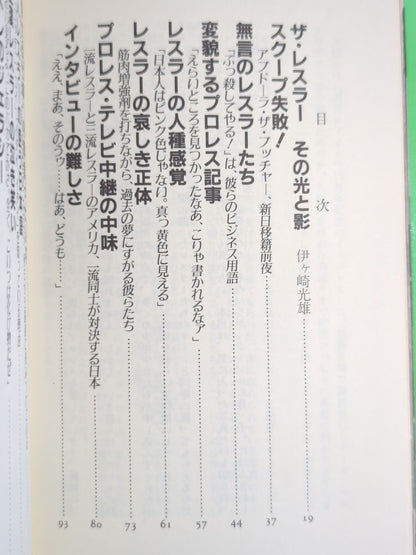 目次
ザ・レスラー その光と影 伊ヶ崎光雄 19
スクープ失敗! 37
アブドーラ・ザ・ブッチャー、新日移籍前夜
無言のレスラーたち 44
「ぶっ殺してやる!」は、彼らのビジネス用語
変貌するプロレス記事 57
「えらいところを見つかったなあ、こりゃ書かれるなァ」
レスラーの人種感覚 61
「日本人はピンク色じゃない。真っ黄色に見える」
レスラーの哀しき正体 73
筋肉増強剤を打ちながら、過去の夢にすがる彼らたち
プロレス・テレビ中継の中味 80
一流レスラーと三流レスラーのアメリカ、一流同士が対決する日本
インタビューの難しさ 93
「ええ、まあ、そのうゥ……はあ、どうも……」